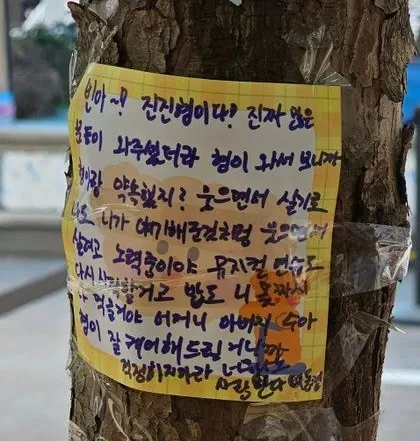 빈아~! 진진형이다! 진짜 많은
분들이 와주셨더라 형이 와서 보니까
형이랑 약속했지? 웃으면서 살기로
니가 얘기해준것처럼 웃으면서
살려고 노력중이야 뮤지컬 연습도
다시 시작할거고 밥도 니 몫까지
먹을거야 어머니 아버지 수아
형이 잘 케어해드릴거니까
걱정하지마라
사랑한다